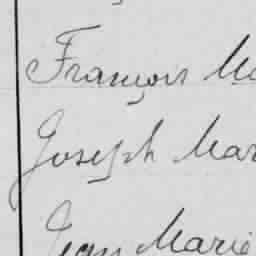 François Ma
Joseph Mar
Jean Marie